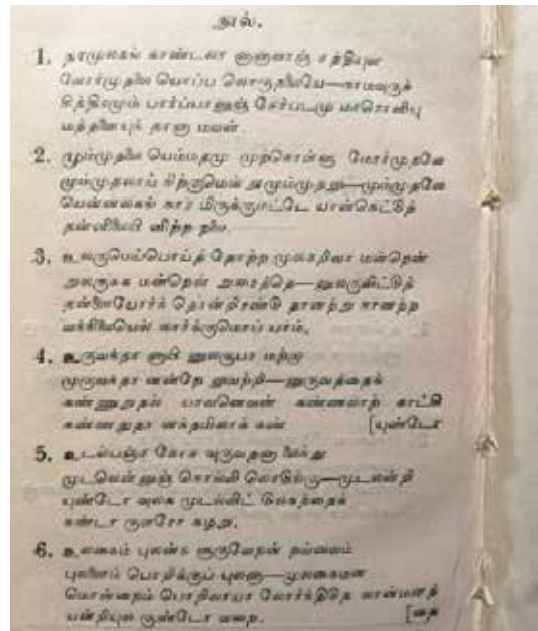 நூல்.
1. நாமுலகங் காண்டலா னானாவாஞ் சத்தியுள
வோர்முதலை யொப்ப லொருதலையே—நாமவுருச்
சித்திரமும் பார்ப்பானுஞ் சேர்படமு மாரொளியு
மத்தனையுந் தானா மவன்.
2. மும்முதலை யெம்மதமு முற்கொள்ளு மோர்முதலே
மும்முதலாய் நிற்குமென் றுமும்முதலு—மும்முதலே
யென்னலகங் கார மிருக்குமட்டே யான்கெட்டுத்
தன்னிலையி னிற்ற றலை.
3. உலகுமெய்பொய்த் தோற்ற முலகறிவா மன்றென்
றுலகுசுக மன்றென் றுரைத்தெ—னுலகுவிட்டுத்
தன்னையோர்ந் தொன்றிரண்டு தானற்று நானற்ற
வந்நிலையெல் லார்க்குமொப் பாம்.
4. உருவந்தா னாயி னுலகுபர மற்று
முருவந்தா னன்றே லுவற்றி—னுருவத்தைக்
கண்ணுறுதல் யாவனெவன் கண்ணலாற் காட்சி
கண்ணதுதா னந்தமிலாக் கண் [யுண்டோ
5. உடல்பஞ்ச கோச வுருவதனா லைந்து
முடலென்னுஞ் சொல்லி லொடுங்கு—முடலன்றி
யுண்டோ வுலக முடல்விட் டுலகத்தைக்
கண்டா ருளரோ கழறு.
6. உலகைம் புலன்க ளுருவேறன் றவ்வைம்
புலனைம் பொறிக்குப் புலனா—முலகைமன
மொன்றைம் பொறிவாயா லோர்ந்திடுத லான்மனத்
யன்றியுல குண்டோ வறை. [தை